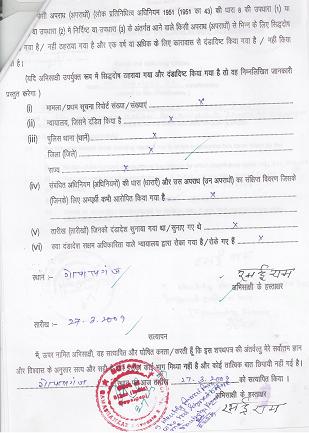 किसी अपराध (अपराधों) (लोक प्रतिनिधित्व अधिनियम 1951 (1951 का 43) की धारा 8 की उपधारा (1) या
उपधारा (2) में निर्दिष्ट या उपधारा (3) के अंतर्गत आने वाले किसी अपराध (अपराधों) से भिन्न के लिए सिद्धदोष
गया है/ नहीं ठहराया गया है और एक वर्ष या अधिक के लिए कारावास से दंडादिष्ट किया गया है / नहीं किया
है।)
(यदि अभिसाक्षी उपर्युक्त रूप में सिद्धदोष ठहराया गया और दंडादिष्ट किया गया है तो वह निम्नलिखित जानकारी
प्रस्तुत करेगा )
(i) मामला/प्रथम सूचना रिपोर्ट संख्या/संख्याएं x
(ii) न्यायालय, जिसने दंडित किया है x
(iii) पुलिस थाना (थाने) x
जिला (जिले) x
राज्य x
(iv) संबंधित अधिनियम (अधिनियमों) की धारा (धाराएँ) और उस अपराध (उन अपराधों) का संक्षिप्त विवरण जिसके
(जिनके) लिए अभ्यर्थी को आरोपित किया गया है x
(v) तारीख (तारीखों) जिनको दंडादेश सुनाया गया था/सुनाए गए थे x
(vi) क्या दंडादेश सक्षम अधिकारिता वाले न्यायालय द्वारा रोका गया है/रोके गए हैं x
स्थान :- गोपालगंज
अभिसाक्षी के हस्ताक्षर
तारीख :- 27-3-2009
सत्यापन
मैं, ऊपर नामित अभिसाक्षी, यह सत्यापित और घोषित करता/करती हूँ कि इस शपथपत्र की अंतर्वस्तु मेरे सर्वोत्तम ज्ञान
और विश्वास के अनुसार सत्य और सही है कोई भाग मिथ्या नहीं है और कोई तात्विक बात छिपायी नहीं गई है।
गोपालगंज आज तारीख 27-3-2009 को सत्यापित किया ।
अभिसाक्षी के हस्ताक्षर